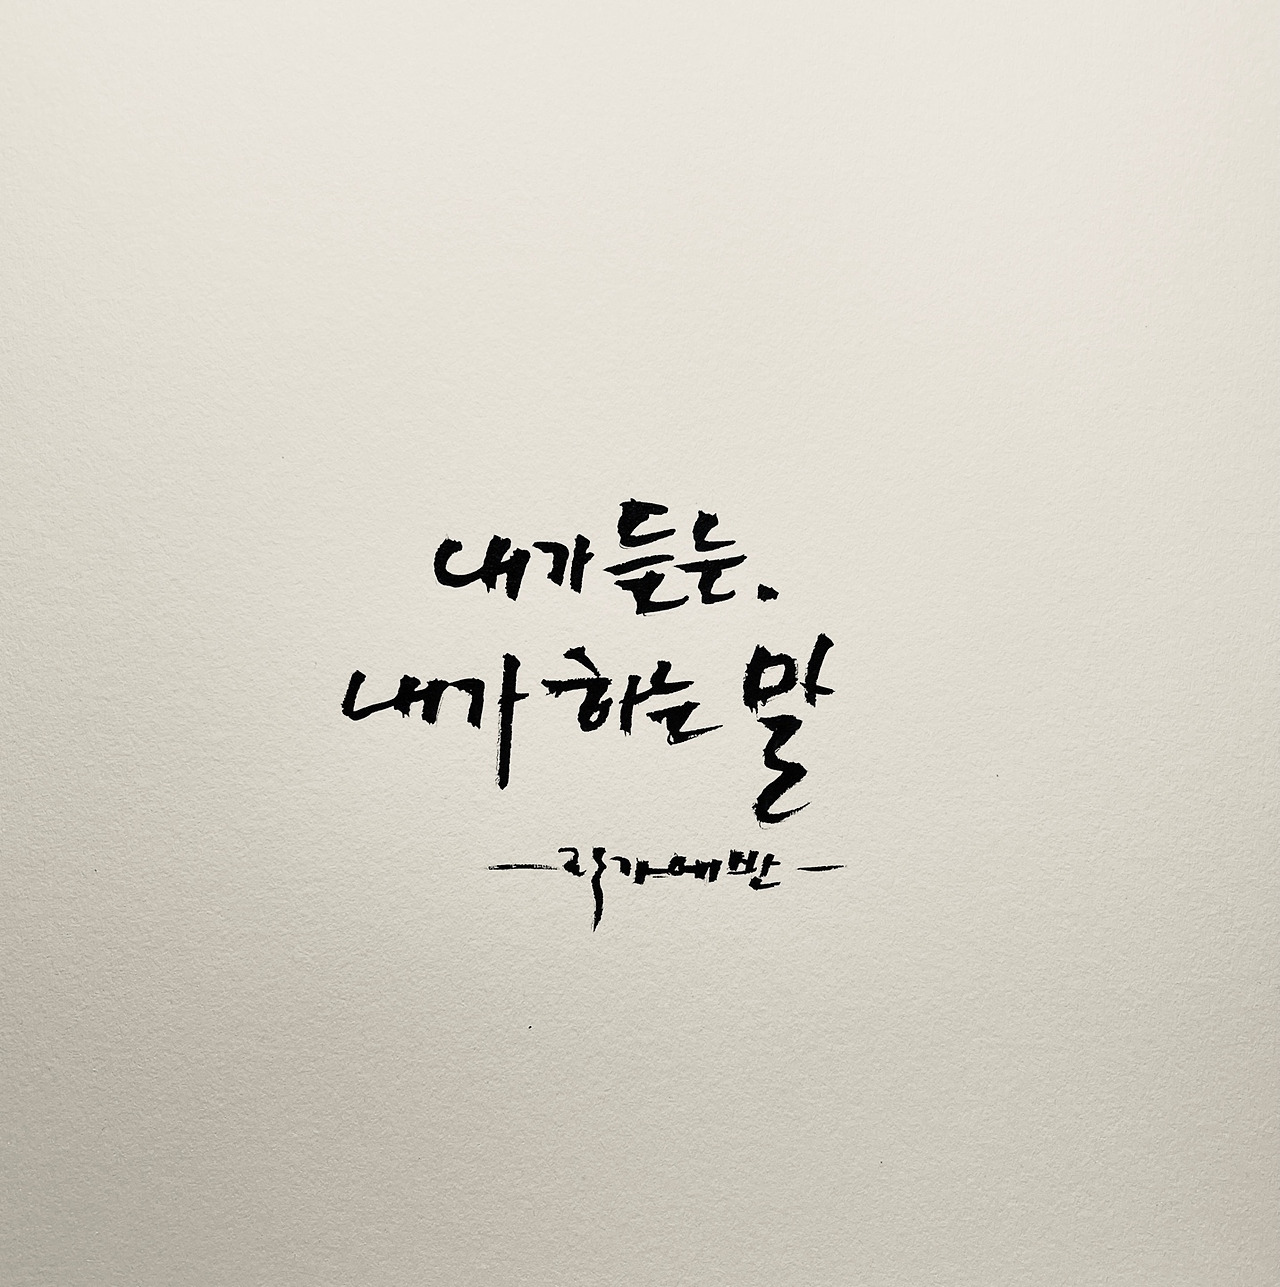 내가 듣는.
내가 하는 말
-작가에반-